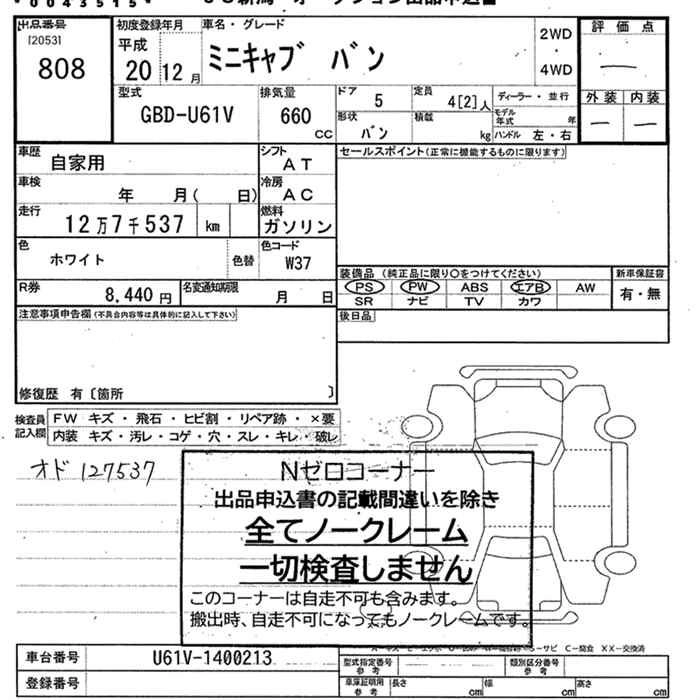 *0043515*
出品番号
[2053]
808
初度登録年月
平成
20 12月
車名・グレード
ミニキャブ バン
2WD
・
4WD
評価点
—
外装 内装
— —
型式
GBD-U61V
排気量
660
cc
ドア
5
定員
4[2]人
ディーラー・並行
形状
バン
積載
kg
モデル年式 年
ハンドル 左・右
車歴
自家用
シフト
AT
セールスポイント(正常に機能するものに限ります)
車検
年 月( 日)
冷房
AC
走行
12万7千537 km
燃料
ガソリン
色
ホワイト
色替
色コード
W37
装備品(純正品に限り○をつけてください)
新車保証書
PS PW ABS エアB AW
有・無
SR ナビ TV カワ
R券
8,440円
名変通知期限
月 日
注意事項申告欄(不具合内容等は具体的に記入して下さい)
後日品
修復歴 有〔箇所 〕
検査員記入欄
FW キズ・飛石・ヒビ割・リペア跡・×要
内装 キズ・汚レ・コゲ・穴・スレ・キレ・破レ
オド 127537
Nゼロコーナー
出品申込書の記載間違いを除き
全てノークレーム
一切検査しません
このコーナーは自走不可も含みます。
搬出時、自走不可になってもノークレームです。
サビ C-腐食 XX-交換済
車台番号
U61V-1400213
型式指定番号
参考
類別区分番号
参考
登録番号
車庫証明用
参考
長さ cm 幅 cm 高さ cm